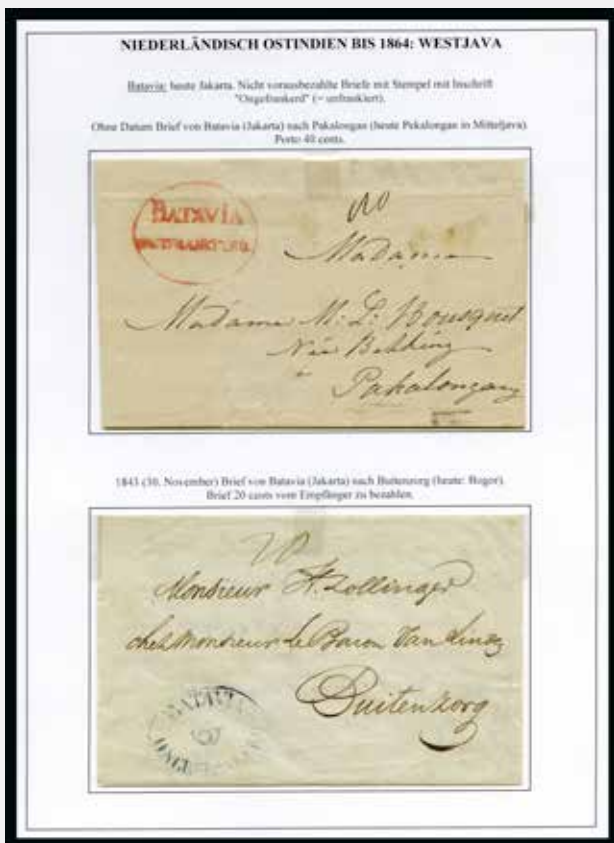 NIEDERLÄNDISCH OSTINDIEN BIS 1864: WESTJAVA
Batavia: heute Jakarta. Nicht vorausbezahlte Briefe mit Stempel mit Inschrift
"Ongefrankeerd" (= unfrankiert).
Ohne Datum Brief von Batavia (Jakarta) nach Pakalongan (heute Pekalongan in Mitteljava)
Porto 40 cents.
BATAVIA
Madame
Madame M: L: Bousquet
Née
Pakalongang
1843 (30. November) Brief von Batavia (Jakarta) nach Buitenzorg (heute: Bogor).
Brief 20 cents vom Empfänger zu bezahlen.
20
Monsieur H. Zollinger
chez Monsieur Le Baron Van
Buitenzorg
BATAVIA